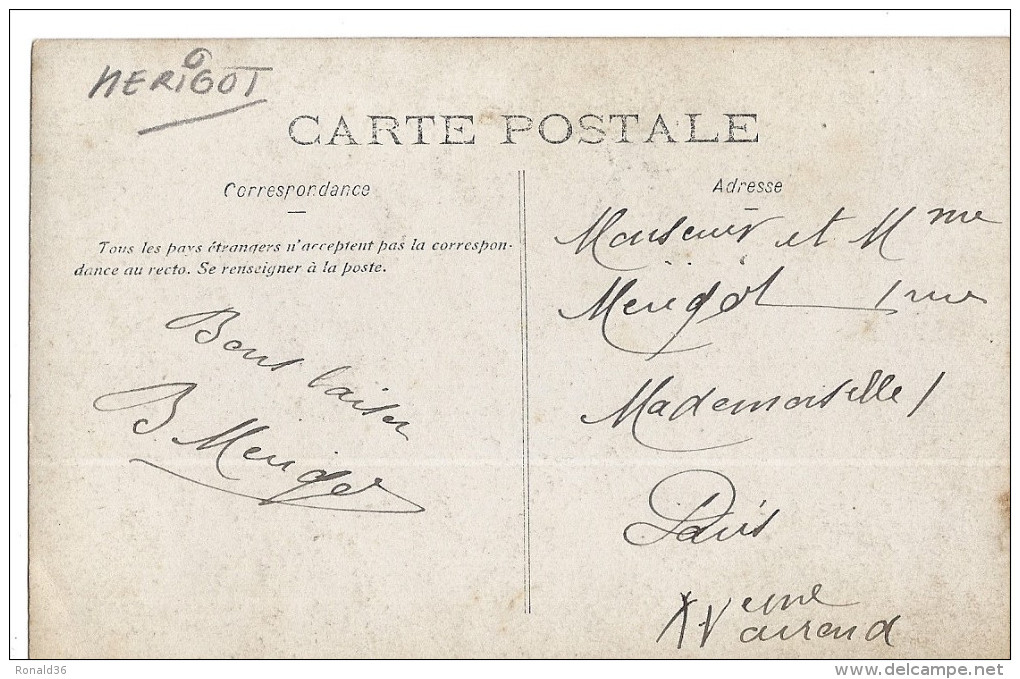 MERIGOT
CARTE POSTALE
Correspondance
Tous les pays étrangers n'acceptent pas la correspon-
dance au recto. Se renseigner à la poste.
Bons baiser
B Merigot
Adresse
Monsieur et Mme
Merigot rue
Mademoiselle
Paris
XVeme
arrond
Ronald36
delcampe.net